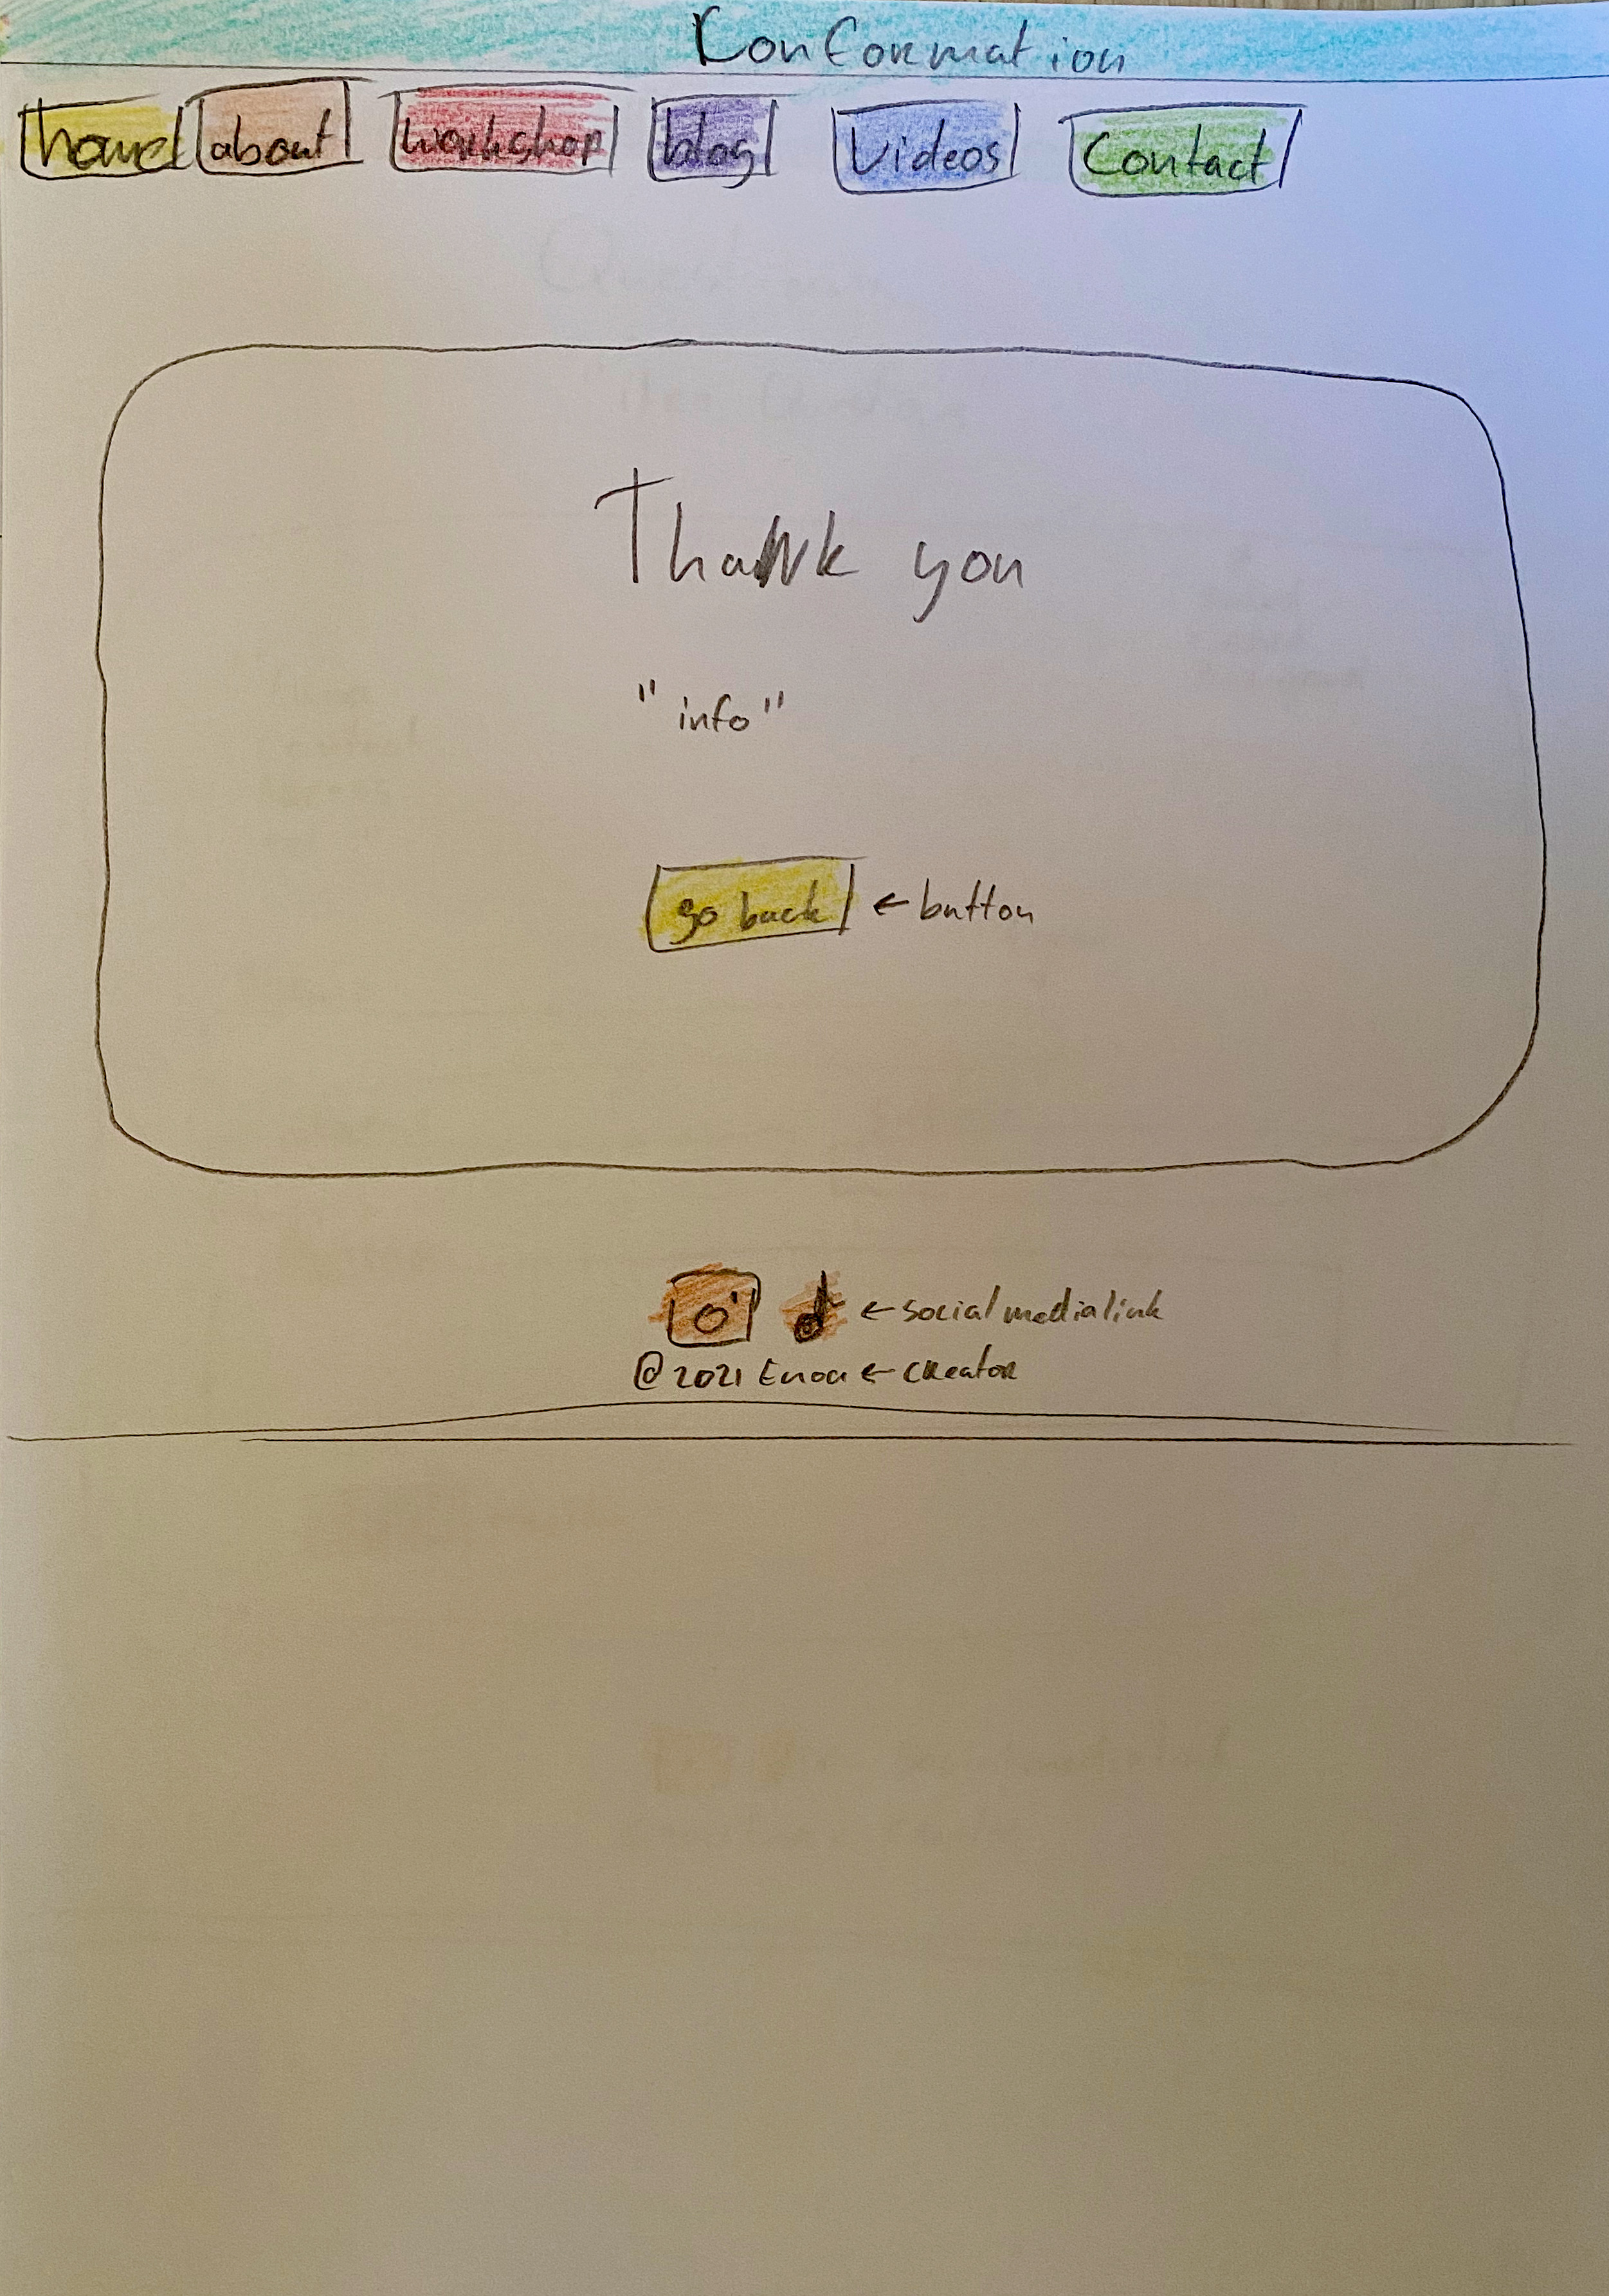 Conformation
home about workshop blog Videos Contact
Thank you
"info"
go back ← button
← social media link
@2021 Enoa ← creator